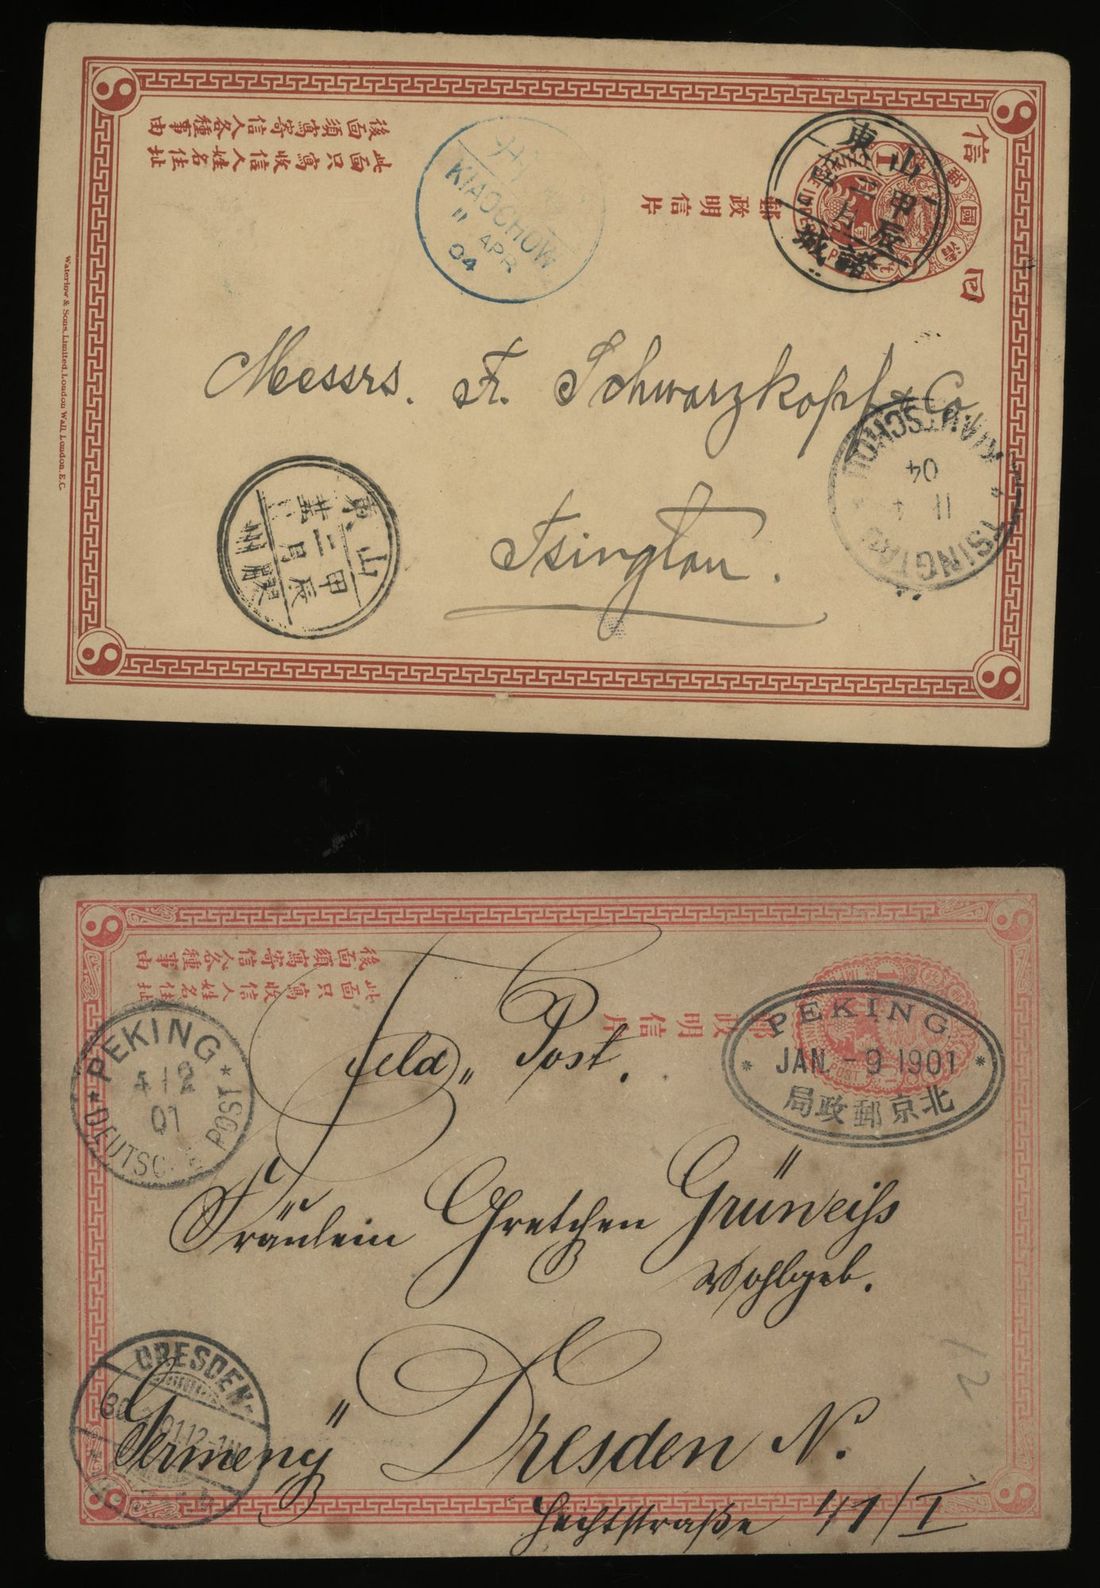 後面須寫寄信人各種事由
此面只寫收信人姓名住址
郵政明信片
信
回
大清國郵
山東
甲辰
諸城
KIAOCHOW.
11 APR
04
Messrs. Fr. Schwarzkopf & Co.
Tsingtau.
山東
甲辰
二月
膠州
TSINGTAU KIAUTSCHOU
11 4
04
Waterlow & Sons, Limited, London Wall, London, E.C.
後面須寫寄信人各種事由
此面只寫收信人姓名住址
郵政明信片
PEKING
JAN. - 9 1901
北京郵政局
PEKING
4 12
01
DEUTSCHE POST
Feld Post.
Fräulein Gretchen Grüneiß
Wohlgeb.
DRESDEN-
Germeny" Dresden N.
Hechtstraße 41/I
12